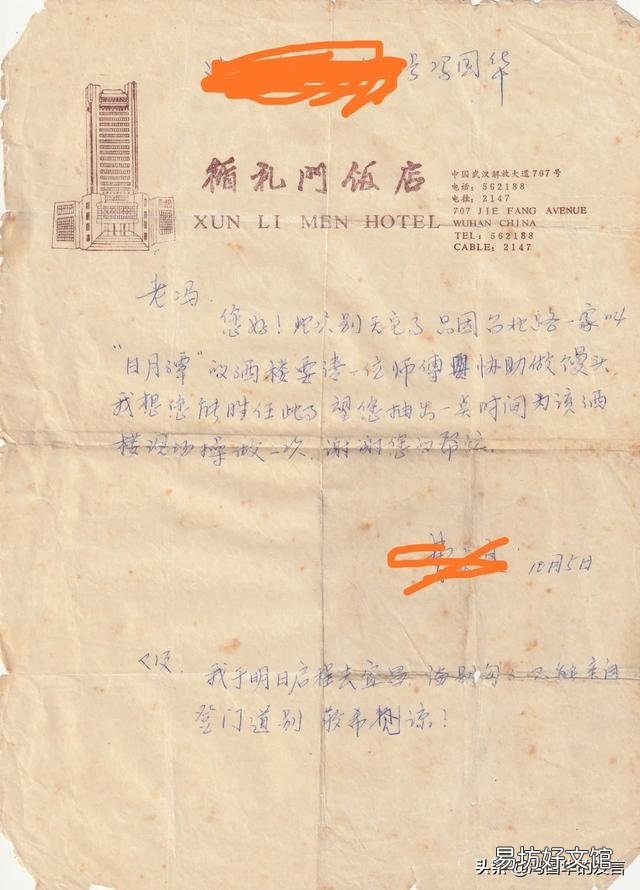 号 冯国华
循礼門饭店
XUN LI MEN HOTEL
中国武汉解放大道707号
电话：562188
电挂：2147
707 JIE FANG AVENUE
WUHAN CHINA
TEL：562188
CABLE：2147
老冯.
您好！此次别无它事 只因台北路一家叫
"日月谭"的酒楼要请一位师傅 协助做馒头
我想您能胜任此事 望您抽出一点时间为该酒
楼现场操做一次 谢谢您的帮忙.
10月5日
我于明日启程去宜昌 不能亲自
登门道别 敬希 谅！
易坊好文馆
头条 @冯国华的发言